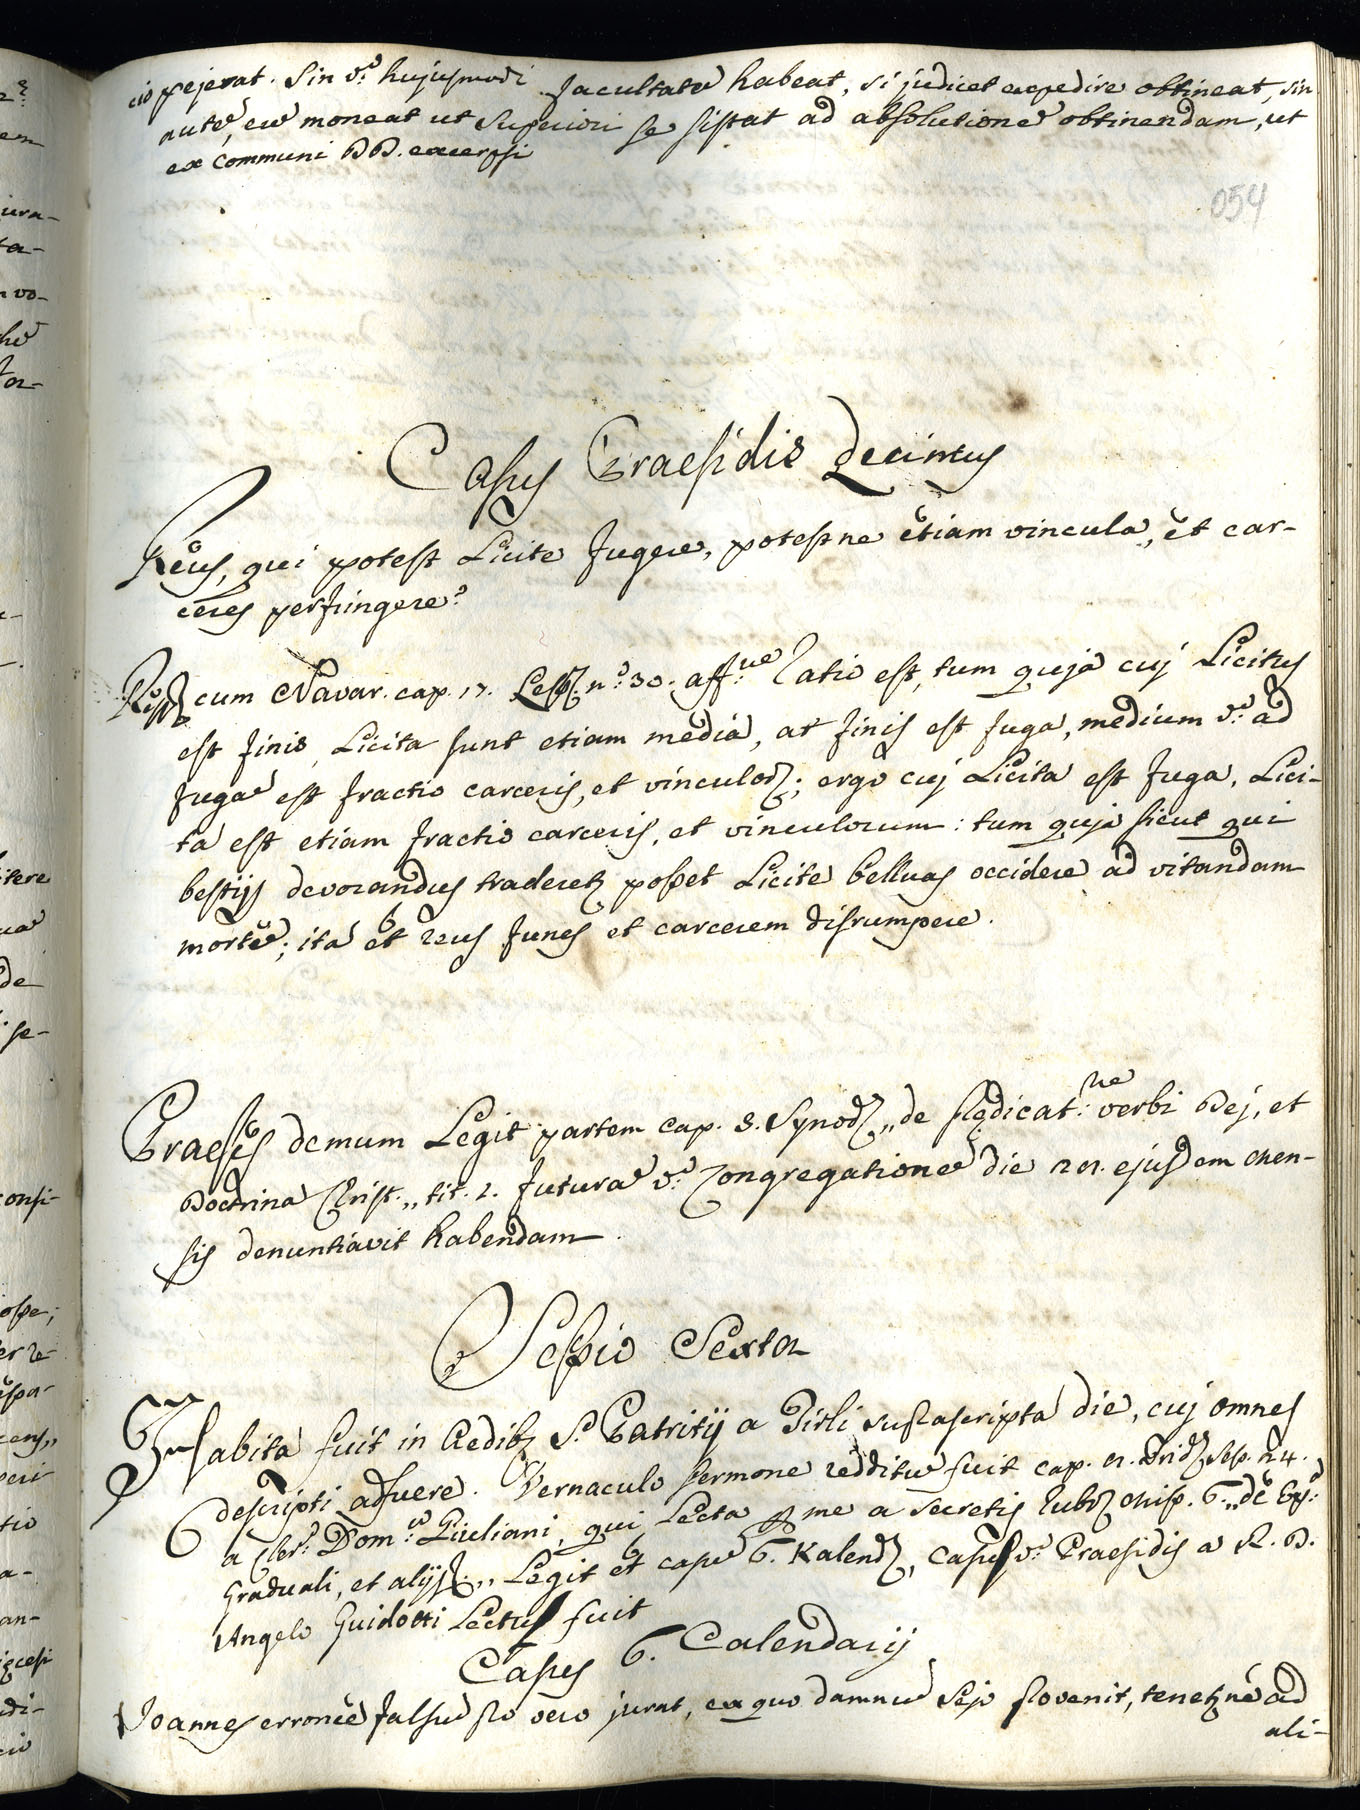 cio pejerat. Sin v.ò hujusmodi facultatē habeat, si judicet expedire obtineat, sin
autē, eū moneat ut Superiori se sistat ad absolutionē obtinendam, ut
ex communi DD. excerpsi
054
Casus Praesidis Decimus
Reus, qui potest Licite fugere, potestne etiam vincula, et car-
ceres perfringere?
cum Navar. cap. 17. n.º 30. aff.ve Ratio est, tum quia cuj Licitus
est finis, Licita sunt etiam media, at finis est fuga, medium v.ò ad
fugā est fractio carceris, et vinculoꝝ; ergo cuj Licita est fuga, Lici-
ta est etiam fractio carceris, et vinculorum: tum quia sicut qui
bestijs devorandus traderetꝫ posset Licite belluas occidere ad vitandam
mortē; ita et reus funes et carcerem disrumpere.
Praeses demum Legit partem cap. 3. Synodꝫ „de p̄dicat:ne verbi Dej, et
Doctrina Christ.„ tit. 2. futurā v.ò Congregationē die 21. ejusdem men-
sis denuntiavit habendam.
Sessio Sexta
Habita fuit in Aedibꝫ S. Patritij a Tirli suprascripta die, cuj omnes
descripti adfuere. Vernaculo sermone redditū fuit cap. sess. 24.
a Dom.co Giuliani, qui Lecta p me a secretis Rubꝫ Miss. 6. „de
Graduali, et alijs„ Legit et capū 6. Kalendꝫ, Casus v.ò Praesidis a R. D.
Angelo Guidotti Lectus fuit
Casus 6. Calendarij
Joannes erroneè falsū pro vero jurat, ex quo damnū Sejo provenit, tenetꝫ nè ad
ali-